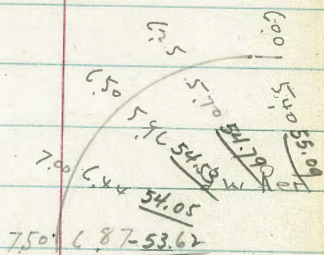 6.00 5.40 55.09
6.25 5.70 54.79
6.50 5.96 54.53
7.00 6.44 54.05
7.50 6.87-53.62